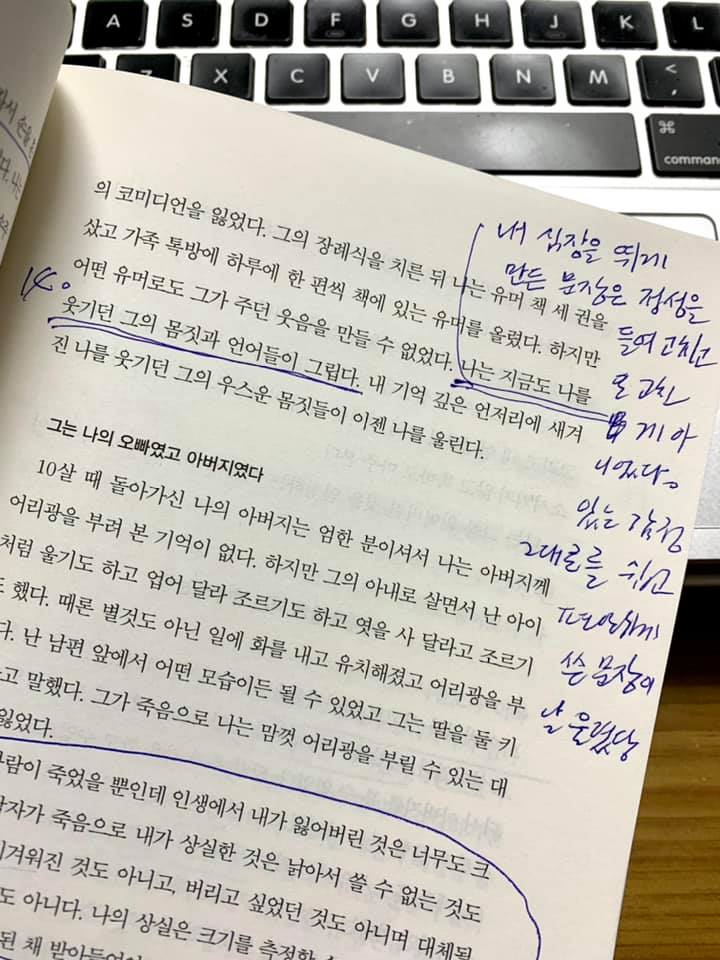 A S D F G H J K L
Z X C V B N M < ,
⌘
command
의 코미디언을 잃었다. 그의 장례식을 치른 뒤 나는 유머 책 세 권을
샀고 가족 톡방에 하루에 한 편씩 책에 있는 유머를 올렸다. 하지만
어떤 유머로도 그가 주던 웃음을 만들 수 없었다. 나는 지금도 나를
웃기던 그의 몸짓과 언어들이 그립다. 내 기억 깊은 언저리에 새겨
진 나를 웃기던 그의 우스운 몸짓들이 이젠 나를 울린다.
그는 나의 오빠였고 아버지였다
10살 때 돌아가신 나의 아버지는 엄한 분이셔서 나는 아버지께
어리광을 부려 본 기억이 없다. 하지만 그의 아내로 살면서 난 아이
처럼 울기도 하고 업어 달라 조르기도 하고 엿을 사 달라고 조르기
도 했다. 때론 별것도 아닌 일에 화를 내고 유치해졌고 어리광을 부
다. 난 남편 앞에서 어떤 모습이든 될 수 있었고 그는 딸을 둘 키
고 말했다. 그가 죽음으로 나는 맘껏 어리광을 부릴 수 있는 대
잃었다.
사람이 죽었을 뿐인데 인생에서 내가 잃어버린 것은 너무도 크
남자가 죽음으로 내가 상실한 것은 낡아서 쓸 수 없는 것도
지겨워진 것도 아니고, 버리고 싶었던 것도 아니며 대체될
도 아니다. 나의 상실은 크기를 측정할 수
된 채 받아들여야
14.
내 심장을 뛰게
만든 문장은 정성을
들여 고치고
또 고친
게 아
니었다.
있는 감정
그대로를 쉽고
편안하게
쓴 문장이
날 울렸당